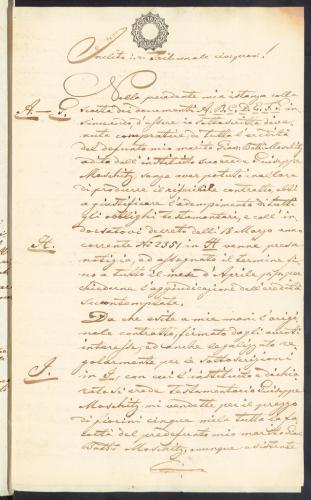 Inclito i. r. Tribunale civ. prov.!
Nella pendente mia istanza colla
A – G. scorta dei documenti A. B. C. D. E. F. G. in
sinuando d'essere io sottoscritta dive
nuta compratrice di tutta l'eredità
del defunto mio marito Giov. Batt. Moschitz
adito dall'instituto suo erede Giuseppe
Moschitz, senza aver potuto nell'ora
di produrre il contratto,
a giustificare l'adempimento di tutti
gli obblighi testamentari, e coll' in
dorsatovi decreto dell' 18 Marzo anno
H. corrente Nº 2351 in H venne presa
notizia, ed assegnato il termine fi
no a tutto il mese d'Aprile p.
chiederne l'aggiudicazione dell'eredità
su contemplata.
Da che esite a mie mani l'origi
nale contratto firmato dagli aventi
interesse, ed anche legalizzato re
golarmente per le sottoscrizioni
I. in I, con cui l'instituto e dichia
ratosi erede testamentario Giuseppe
Moschitz mi vendette per il prezzo
di fiorini cinque mila tutta la fa
coltà del predefunto mio marito Gio
Batta Moschitz, ovunque esistente